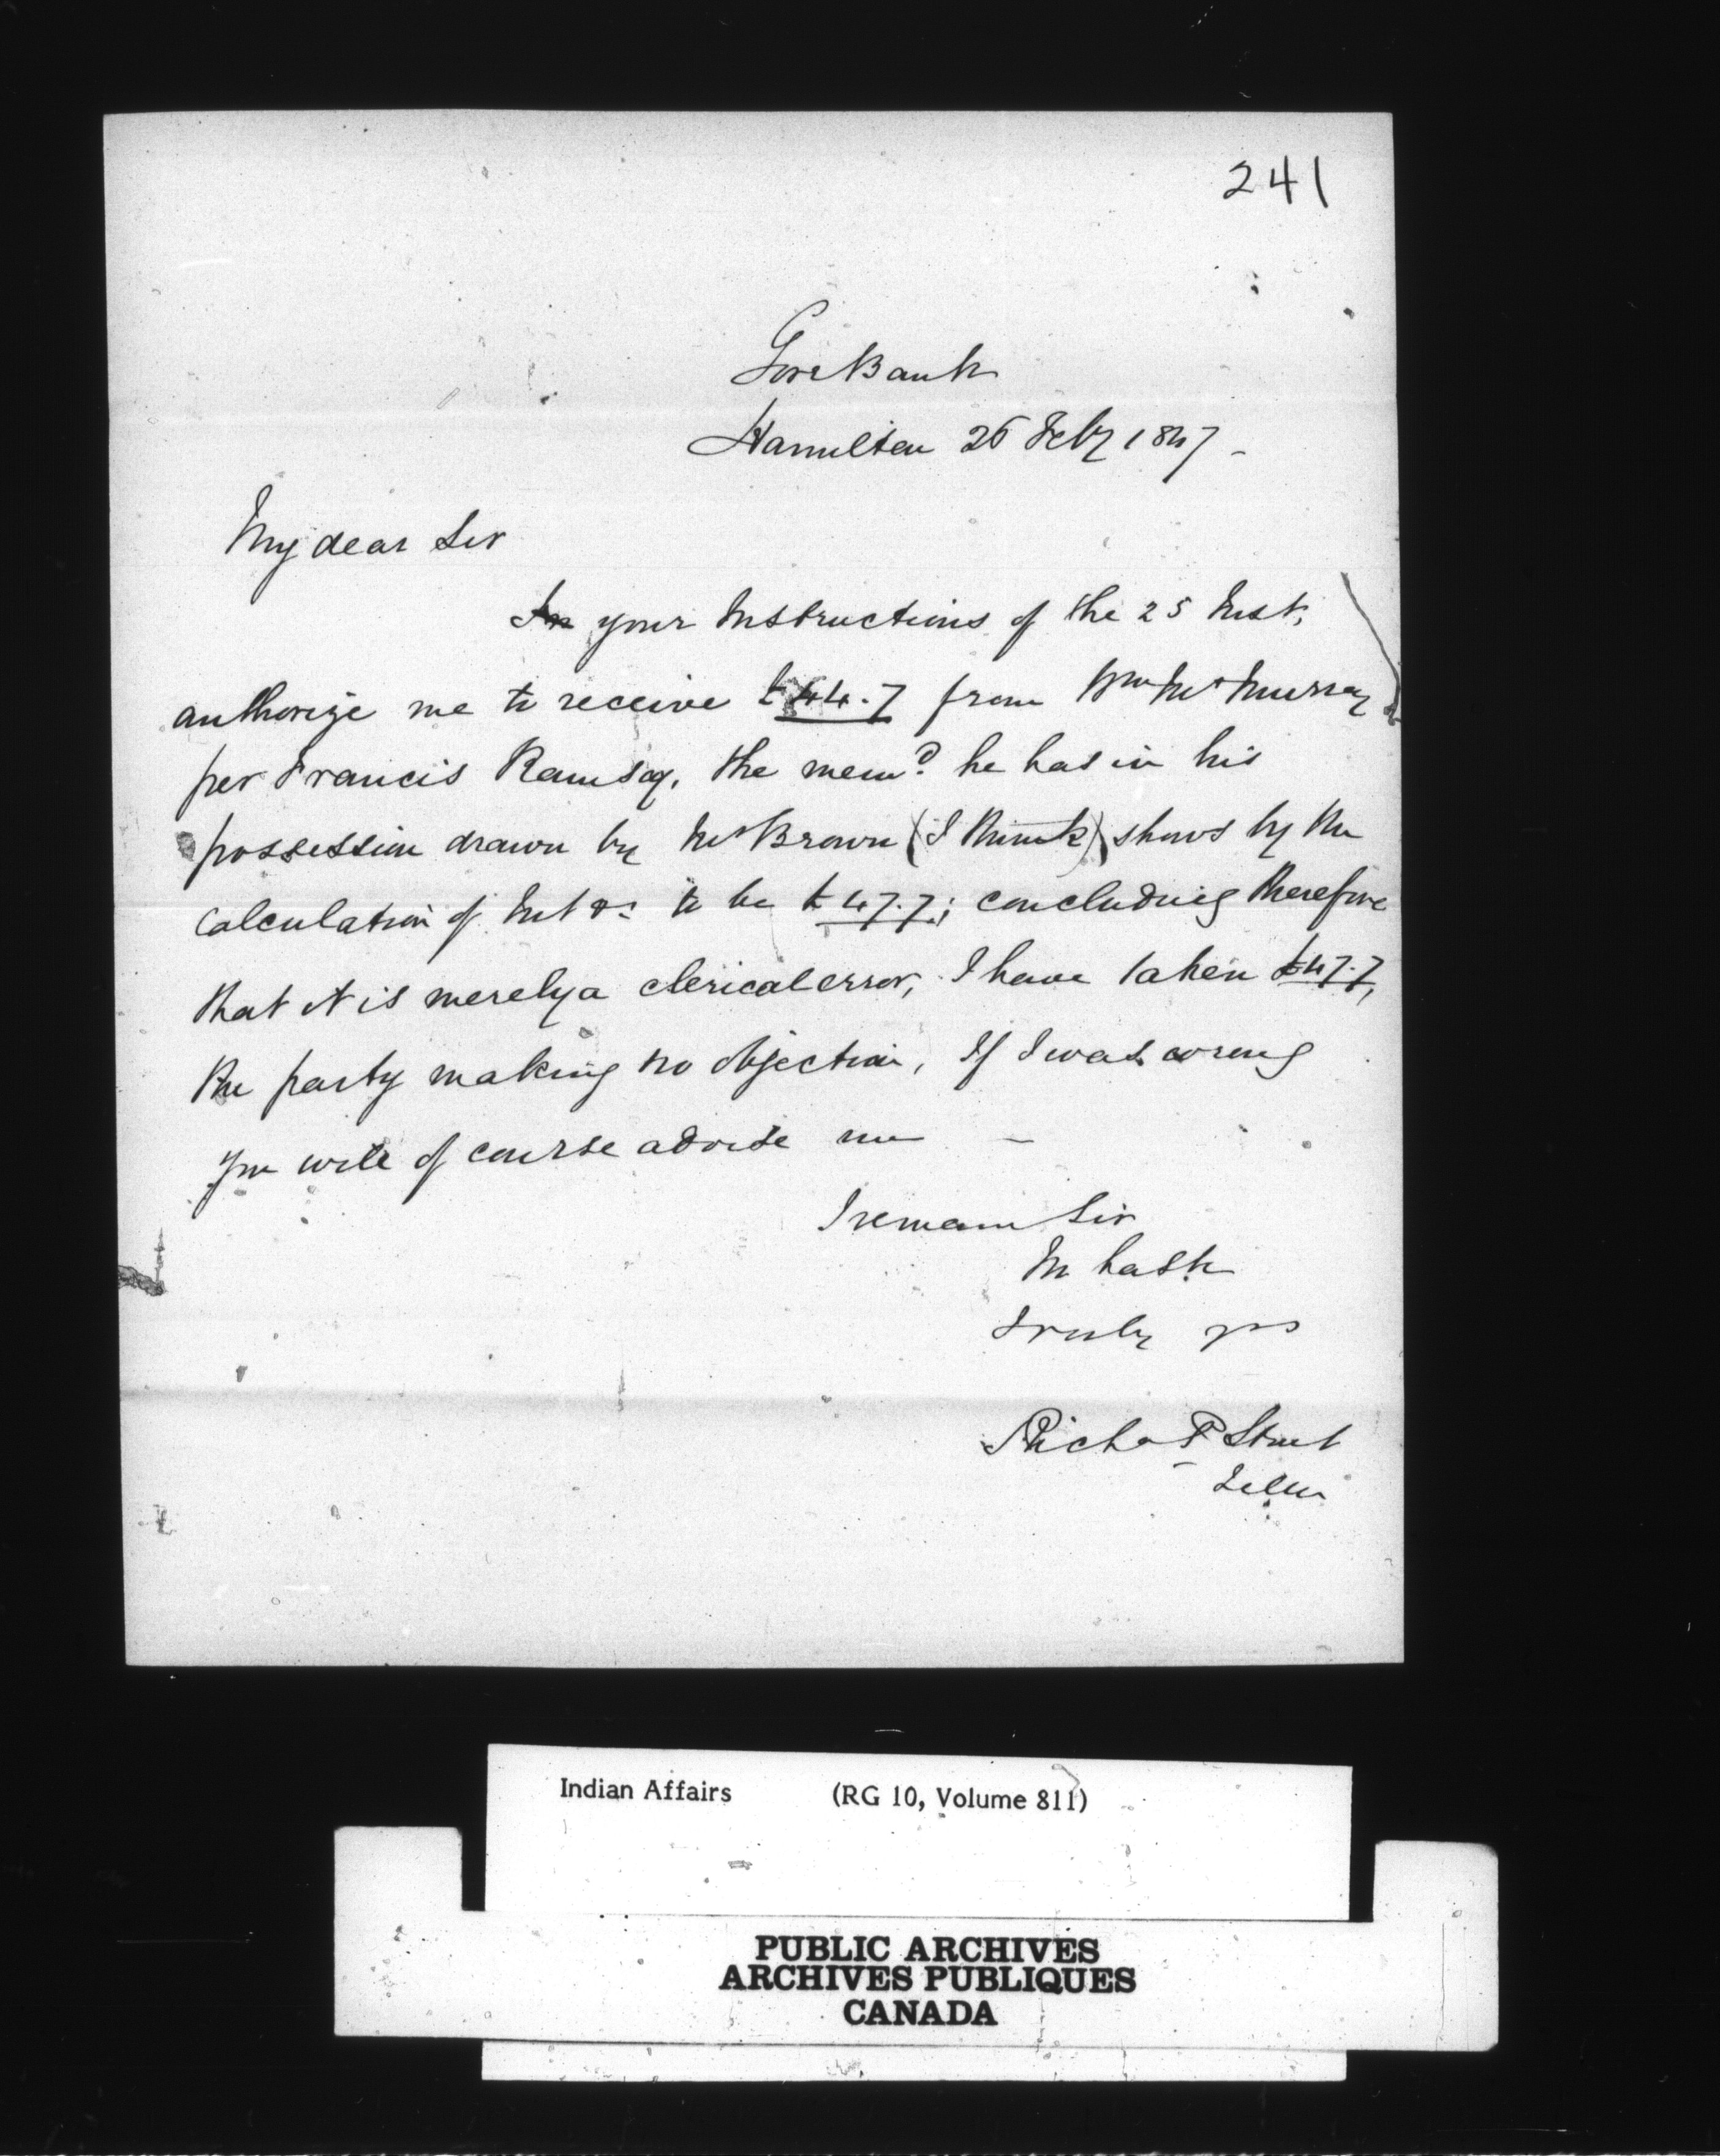 241
Gore Bank
Hamilton 26 Feby 1847 -
My dear Sir
In your Instructions of the 25 Inst,
authorize me to receive £44.7 from Wm McMurray
per Francis Ramsay, the memo he has in his
possession drawn by Mr Brown (I think) shows by the
Calculation of Int &c to be £47.7; concluding therefore
that it is merely a clerical error, I have taken £47.7,
the party making no objection, If I was wrong
you will of course advise me -
I remain Sir
In haste
Truly yrs
Richd P Street
Teller
Indian Affairs (RG 10, Volume 811)
PUBLIC ARCHIVES
ARCHIVES PUBLIQUES
CANADA